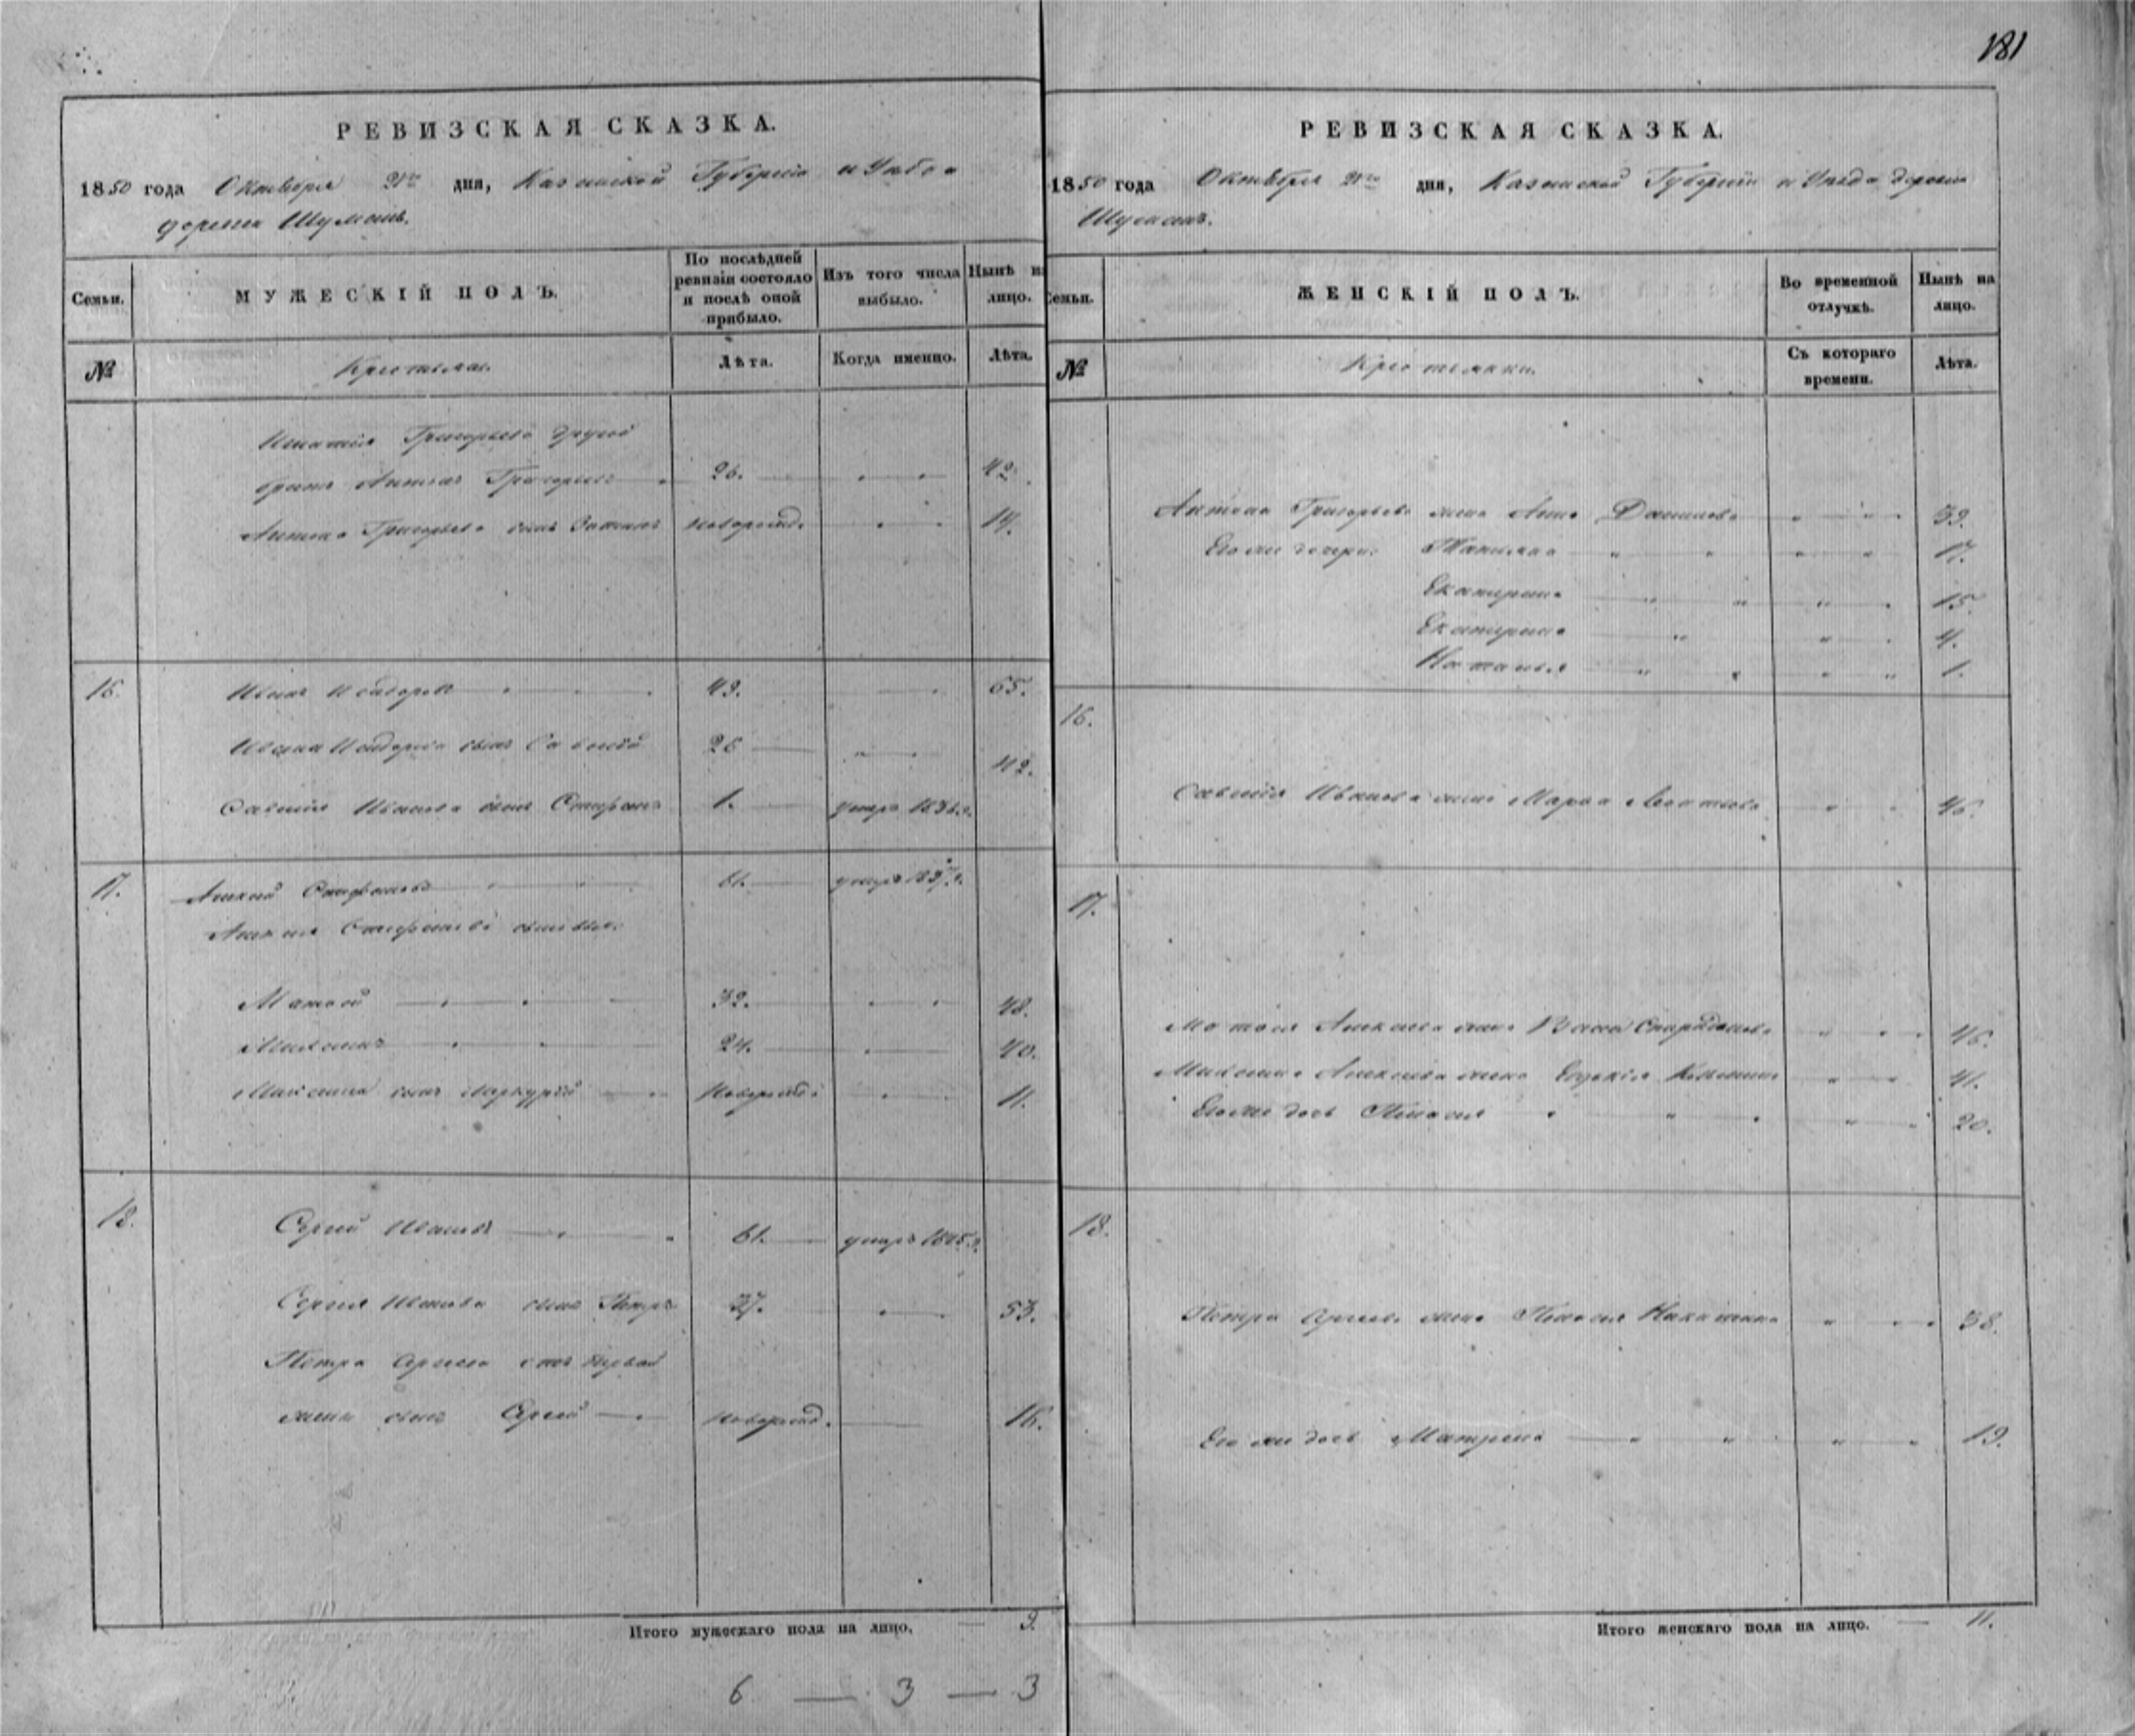 181
РЕВИЗСКАЯ СКАЗКА.
1850 года Октября 21го дня, Казанской Губерніи и Уѣзда
деревни
Семьи.
МУЖЕСКІЙ ПОЛЪ.
По послѣдней ревизіи состояло и послѣ оной прибыло.
Изъ того числа выбыло.
Нынѣ на лицо.
№
Крестьяне.
Лѣта.
Когда именно.
Лѣта.
Григорьева другой
братъ Антонъ Григорьевъ 26. 42.
Антона Григорьева сынъ новорожд. 14.
16. Иванъ Исидоровъ 49. 65.
Ивана Исидорова сынъ Савелій 26 42.
Савелія Иванова сынъ Стефанъ 1. умеръ
17. Алексей Стефановъ 61. умеръ
Алексея Стефанова сыновья:
Матвей 32. 48.
24. 40.
сынъ Меркурій Новорожд. 11.
18. Сергей Ивановъ 61. умеръ
Сергея Иванова сынъ Петръ 37. 53.
Петра Сергеева отъ первой
жены сынъ Сергей Новорожд. 16.
Итого мужескаго пола на лицо. 9.
6 — 3 — 3
РЕВИЗСКАЯ СКАЗКА.
1850 года Октября 21го дня, Казанской Губерніи и Уѣзда деревни
Семьи.
ЖЕНСКІЙ ПОЛЪ.
Во временной отлучкѣ.
Нынѣ на лицо.
№
Крестьянки.
Съ котораго времени.
Лѣта.
Антона Григорьева жена Анна Данилова 39.
Его же дочери: Татьяна 17.
Екатерина 15.
Екатерина 4.
Наталья 1.
16.
Савелія Иванова жена Марья 46.
17.
Матвея Алексеева жена Васса Спиридонова 46.
Алексеева жена Евдокія 41.
Его же дочь 20.
18.
Петра Сергеева жена Никитина 38.
Его же дочь Матрена 19.
Итого женскаго пола на лицо. 11.